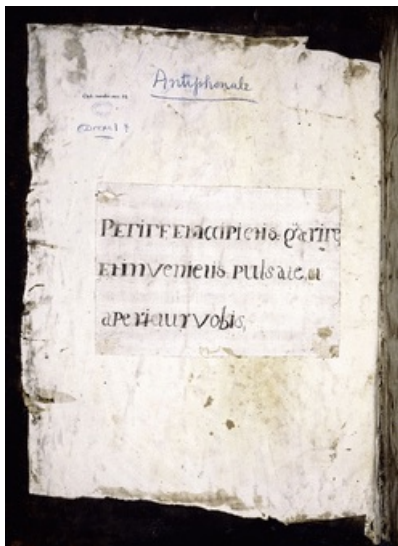 Antiphonale
PETITE ET accipietis quærite
ET invenietis pulsate, et
aperietur vobis,